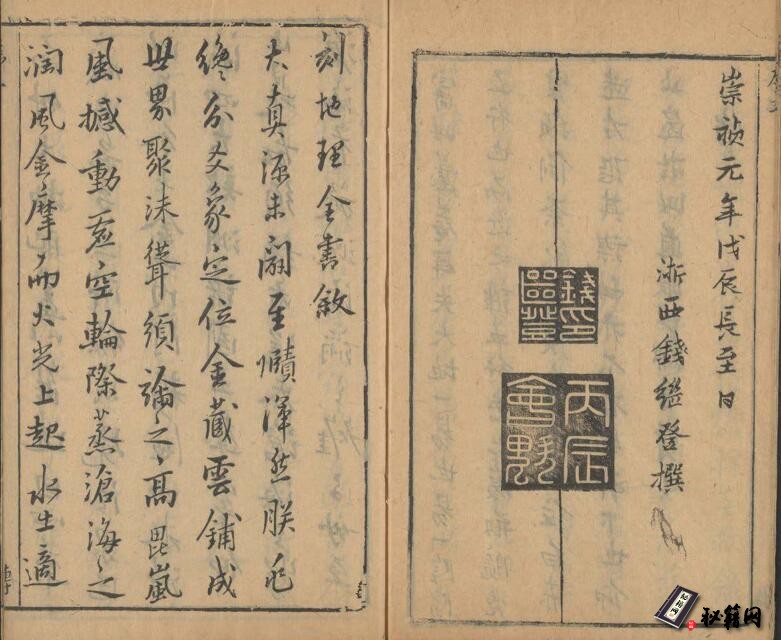 崇禎元年戊辰長至日
浙西錢繼登撰
錢印繼登
丙辰會魁
刻地理全書敘
大真源未闢至賾渾然朕兆
纔分爻象定位金藏雲鋪成
世界聚沫聳須之高毘嵐
風撼動虛空輪際蒸滄海之
潤風金摩而火光上起水生適
秘籍网